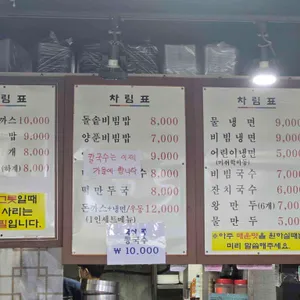 차림표
까스 10,000
밥 9,000
개 8,000
8,000
그릇일때
사리는
입니다.
차 림 표
돌솥비빔밥 8,000
양푼비빔밥 7,000
칼국수는 새피
가을에 합니다
8,000
떡만두국 8,000
돈까스+냉면/우동 12,000
(1인세트메뉴)
칼국수
₩ 10,000
차 림 표
물 냉 면 9,000
비 빔 냉 면 9,000
어린이냉면 5,000
(미취학아동)
비 빔 국 수 7,000
잔 치 국 수 6,000
왕 만 두 (6개) 7,000
물 만 두 5,000
※아주 매운맛을 원하실때
미리 말씀해주세요.